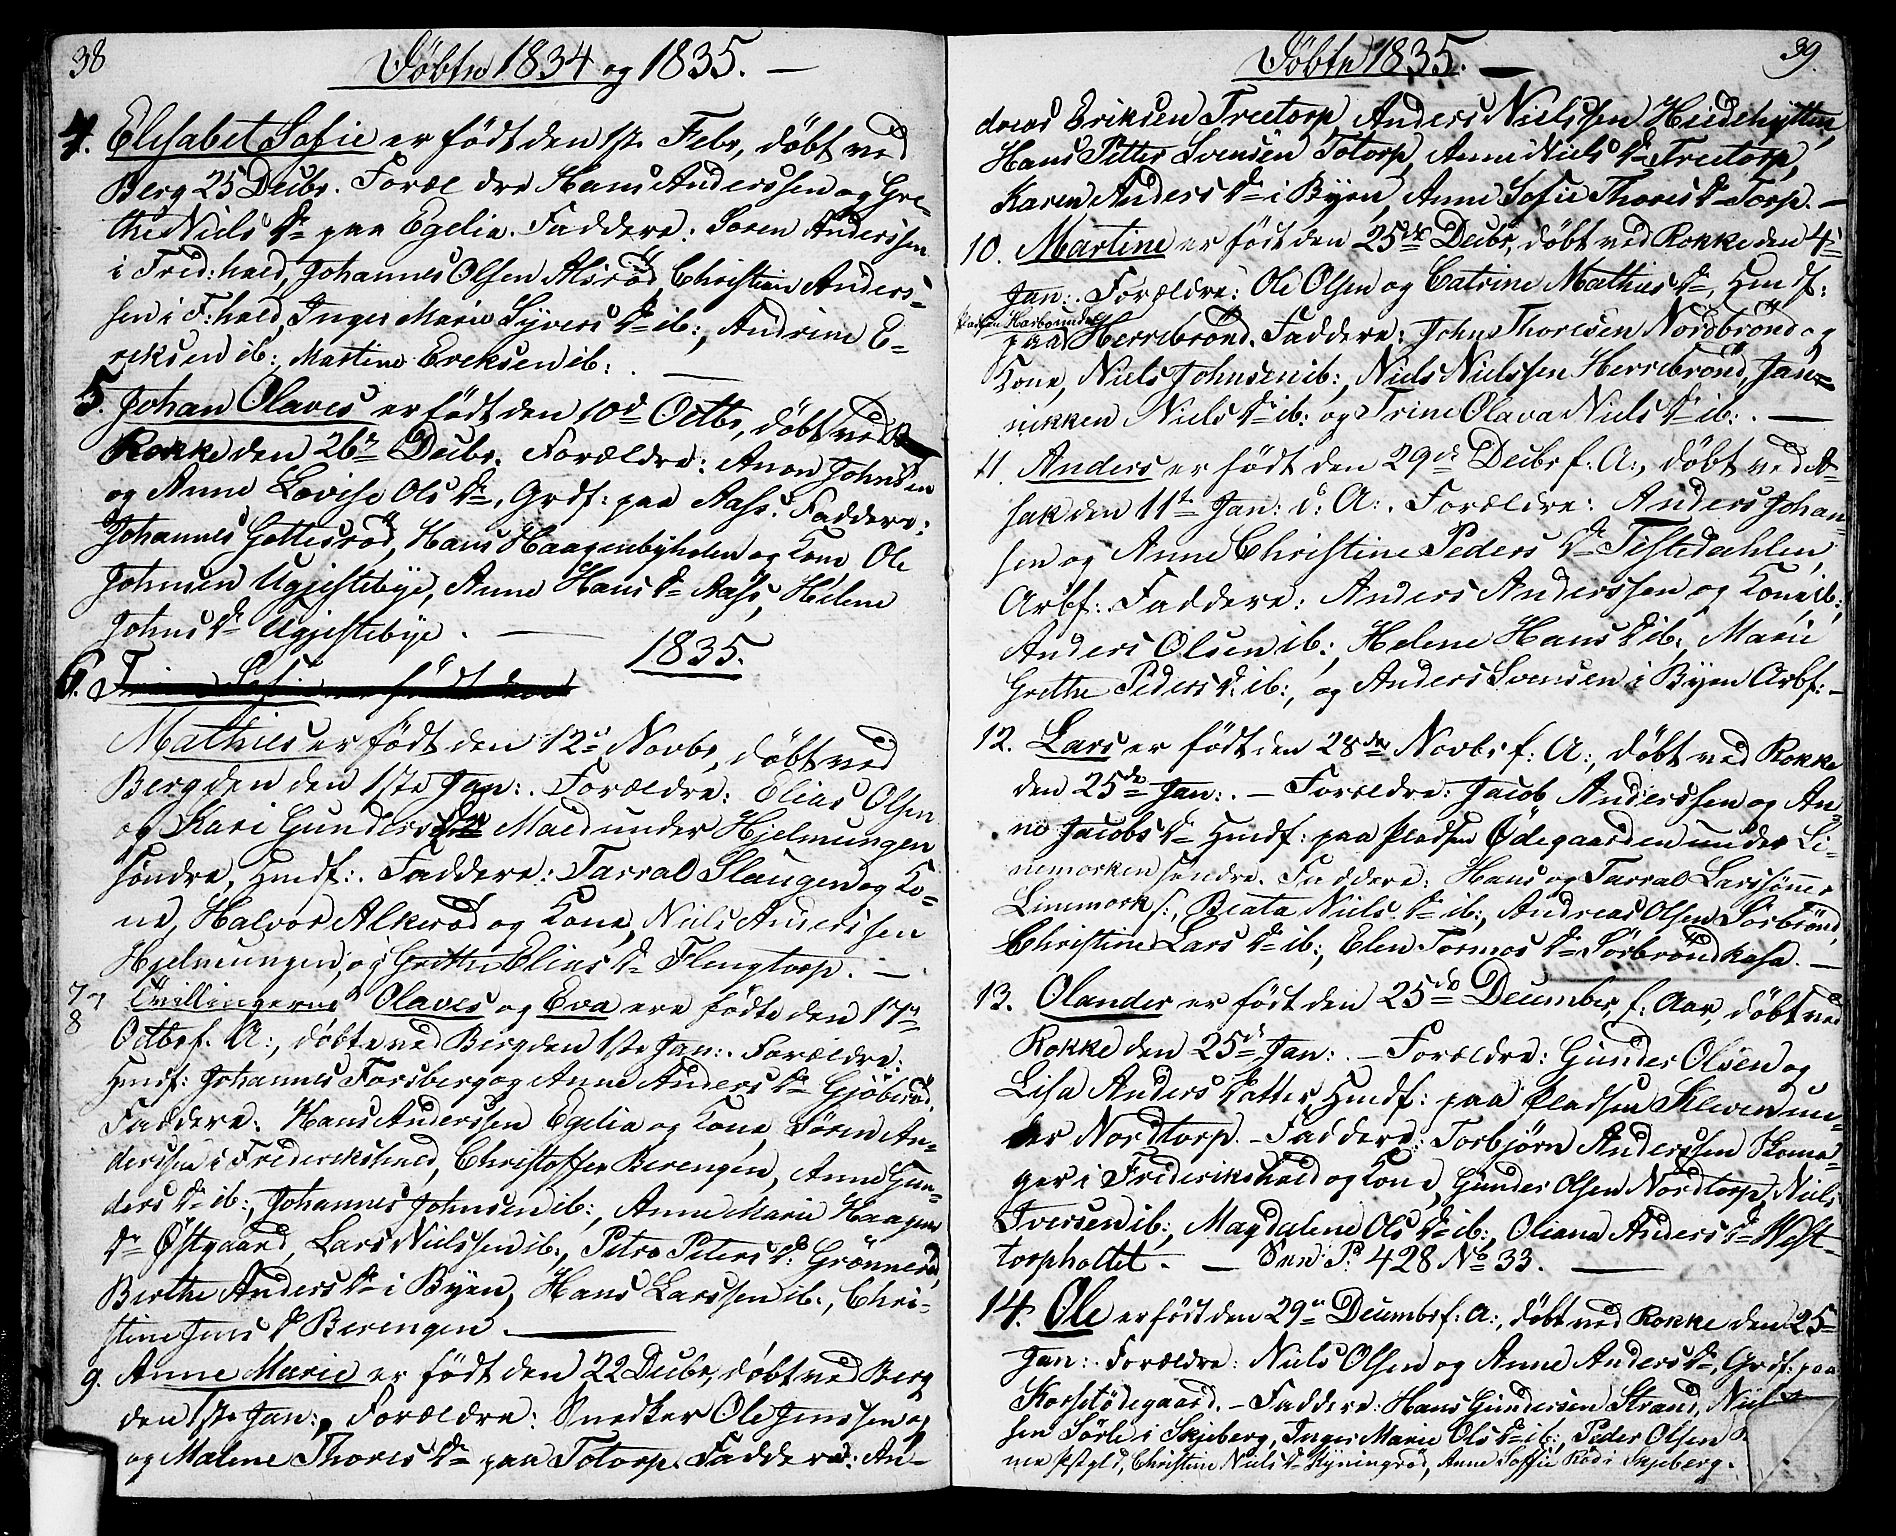 38
Döbte 1834 og 1835. —
4. Elisabet Sofie er födt den 1ste Febr, döbt ved
Berg 25 Decbr. Foræl dre Hans Anderssen og Gre-
the Niels Dr paa Egelia. Faddere: Soren Anderssen
i Fred:hald, Johannes Olsen Alsröd, Christian Anders-
sen i F:hald, Inger Marie Syvers Dr ib:, Andrine E-
reksen ib:, Martine Ereksen ib:. —
5. Johan Olaves er födt den 10d Octbr, döbt ved
Rokke den 26de Decbr. Forældre: Aron Johnsen
og Anne Lovise Ols Dr, Grdf: paa Aass. Faddere:
Johannes Gottesröd, Hans Haagenbyholen og Kone Ole
Johnsen Ugjestebye, Anne Hans Dr Aass, Helene
Johns Dr Ugjestebye. —
1835.
6. Trine Sofie er födt den
Mathies er födt den 12d Novbr, döbt ved
Berg den den 1ste Jan:. Forældre: Elias Olsen
og Kari Gunders Dr Maed under Hjelmungen
söndre, Hmdf:. Faddere: Tarral Slaugen og Ko-
ne, Halvor Alkeröd og Kone, Niels Anderssen
Hjelmungen, og Grethe Elias Dr Flengtorp. —
7 8 Tvillingerne Olaves og Eva ere födte den 17de
Octbr f. A:, döbte ved Berg den 1ste Jan:. Forældre:
Hmdf: Johannes Forsberg og Anne Anders Dr Gjöberöd.
Faddere: Hans Anderssen Egelia og Kone, Sören An-
derssen i Frederikshald, Christoffer Berengen, Anne Gun-
ders Dr ib:, Johannes Johnsen ib:, Anne Marie Haagens
Dr Östgaard, Lars Nielssen ib:, Petra Peters Dr Grönneröd,
Birthe Anders Dr i Byen, Hans Larssen ib:, Chri-
stine Jens Dr Berengen. —
9. Anne Marie er födt den 22 Decbr, döbt ved Berg
den 1ste Jan:, Forældre: Snedker Ole Jenssen og
og Malene Thores Dr paa Totorp. Faddere: An-
39.
Döbte 1835. —
dreas Eriksen Treetorp, Anders Nielssen Heidehytten,
Hans Petter Svensen Totorp, Anne Niels Dr Treetorp,
Karen Anders Dr i Byen, Anne Sofie Thores Dr Torp. —
10. Martine er födt den 25de Decbr, döbt ved Rokke den 4de
Jan:. Forældre: Ole Olsen og Catrine Mathias Dr, Hmdf:
paa Herrebrönd. Faddere: John Thoresen Nordbrönd og
Kone, Niels Johnsen ib:, Niels Nielssen Herrebrönd, Jan-
nikken Niels Dr ib: og Trine Olava Niels Dr ib:. —
11. Anders er födt den 29de Decbr f: A:, döbt ved A-
sak den 11te Jan: d: A:. Forældre: Anders Johan-
sen og Anne Christine Peders Dr Tistedahlen,
Arbf:. Faddere: Anders Anderssen og Kone ib:,
Anders Olsen ib:, Helene Hans Dr ib:, Marie
Grethe Peders D: ib:, og Anders Svensen i Byen Arbf: —
12. Lars er födt den 28de Novbr f: A:, döbt ved Rokke
den 25de Jan:. — Forældre: Jacob Anderssen og An-
ne Jacobs Dr Hmdf: paa Pladsen Ödegaarden under Li-
nemorken söndre. Faddere: Hans og Tarral Larssönner
Linemork s:, Beata Niels Dr ib:, Andreas Olsen Sörbrönd,
Christine Lars Dr ib:, Elen Tormos Dr Sörbröndkasa. —
13. Olander er födt den 25de December f: Aar, döbt ved
Rokke den 25de Jan:. — Forældre: Gunder Olsen og
Lisa Anders Datter Hmdf: paa Pladsen Kleven un-
der Nordtorp. — Faddere: Torbjörn Anderssen Skoma-
ger i Frederikshald og Kone, Gunder Olsen Nordtorp, Niels
Iversen ib:, Magdalene Ols Dr ib:, Oliana Anders Dr West-
torpholtet. — Seev: P. 428 No 33. —
14. Ole er födt den 29de Decembr f: A:, döbt ved Rokke den 25de
Jan:. Forældre: Niels Olsen og Anne Anders Dr, Grdf: paa
Korsetödegaard. — Faddere: Hans Gundersen Strand, Niel
sen Sörle i Skjeberg, Inger Marie Ols Dr ib:, Peder Olsen
Christine Niels Dr Kyningröd, Anne Sofie Röd i Skjeberg.